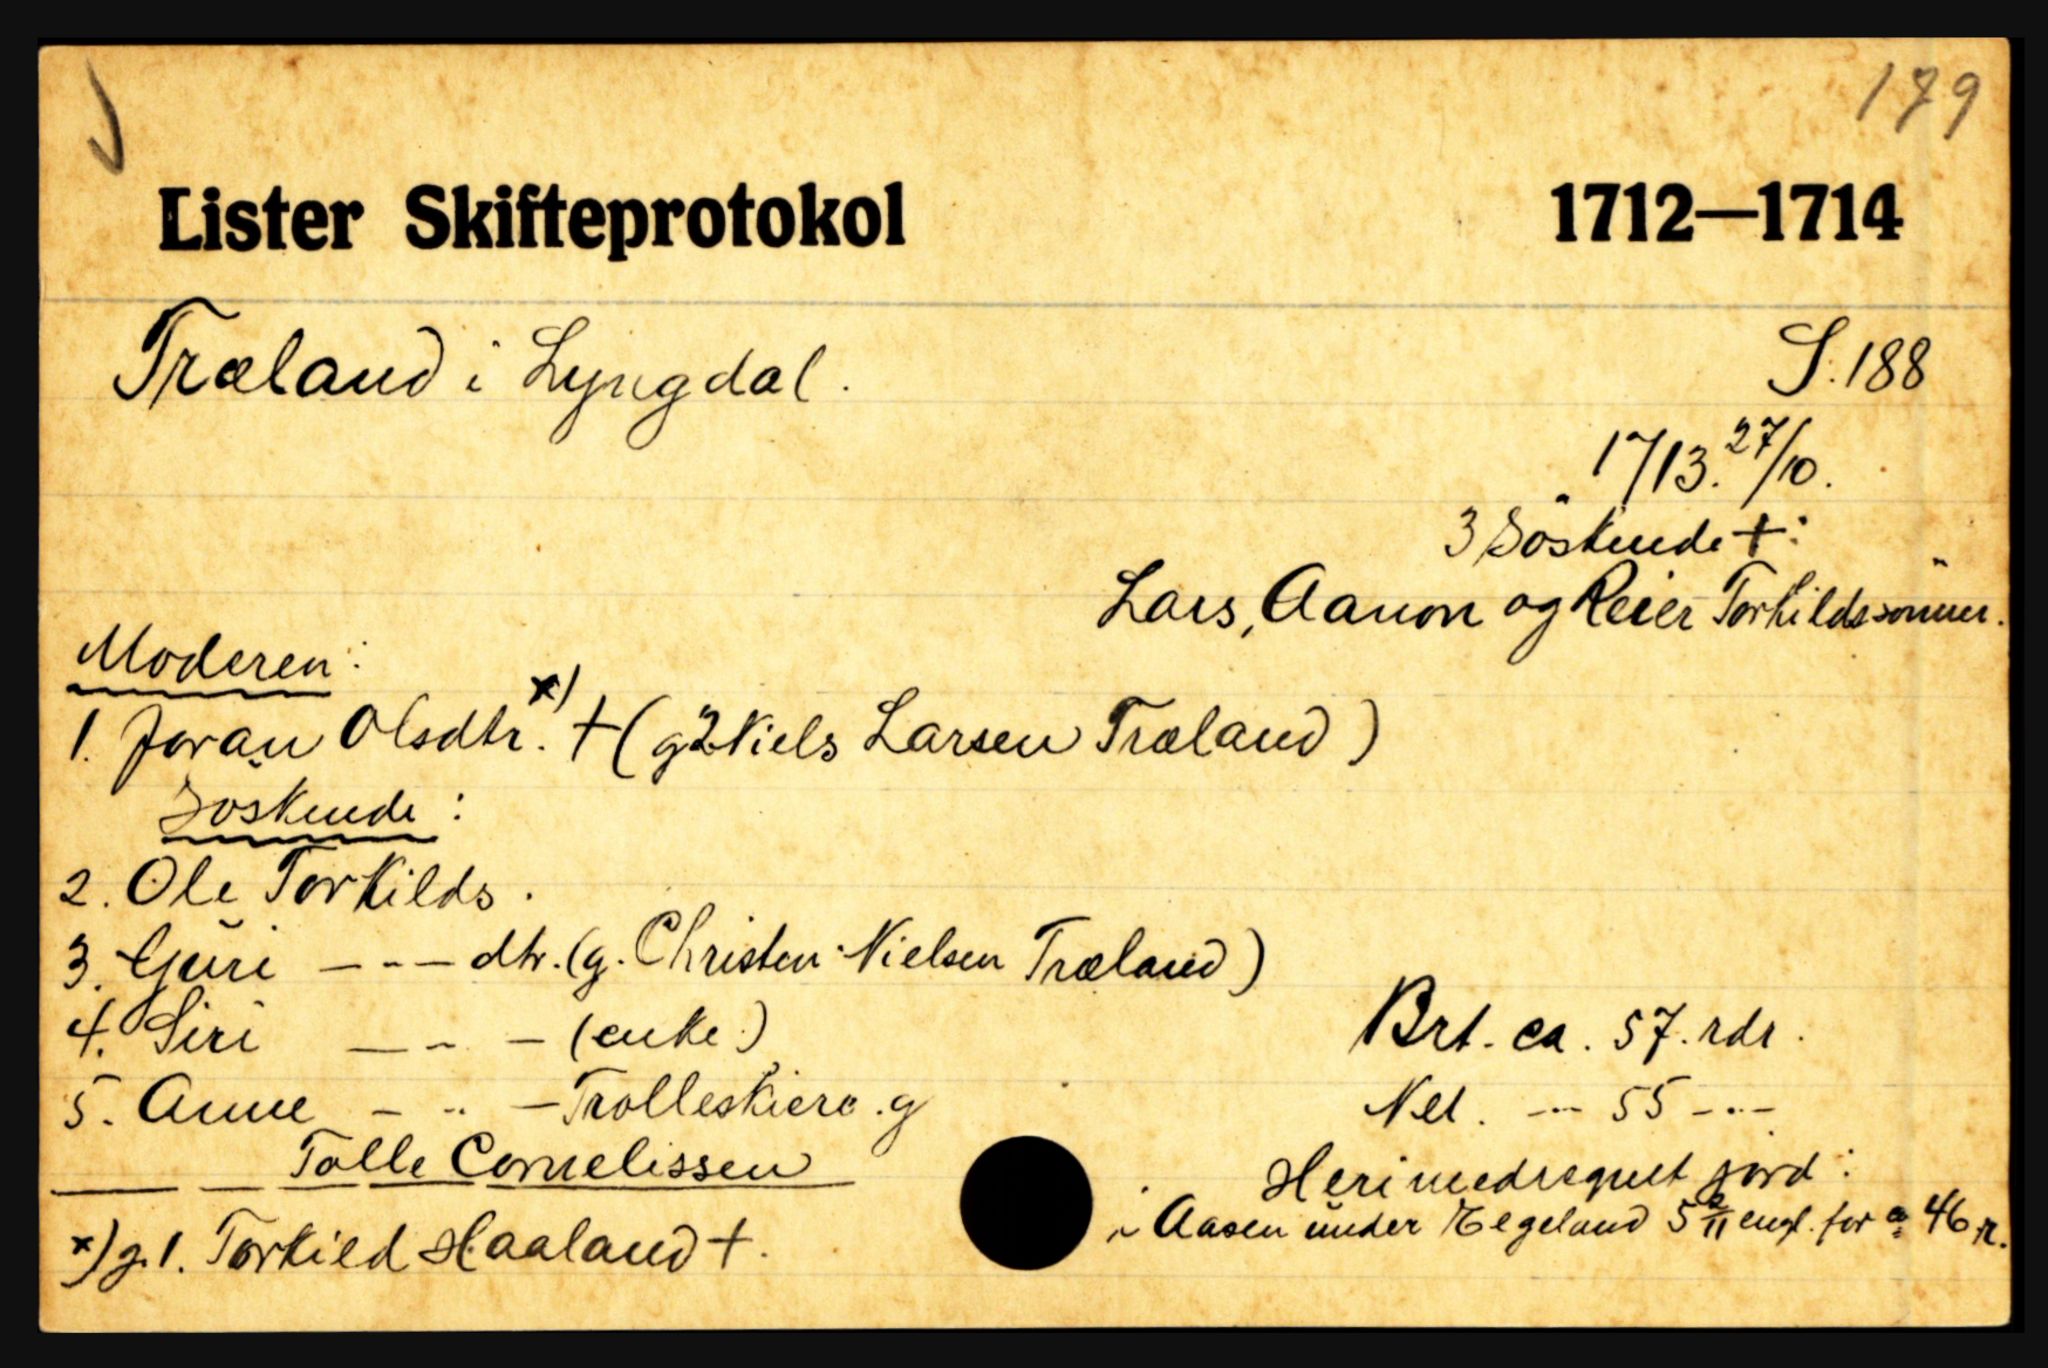 179
Lister Skifteprotokol 1712—1714
Træland i Lyngdal. S. 188
1713. 27/10.
3 Söskende +:
Lars, Aanon og Reier Torkildssönner.
Moderen:
1. Joran Olsdtr. x) + (g 2 Niels Larsen Træland)
Söskende:
2. Ole Torkilds.
3. Guri - - - dtr. (g. Christen Nielsen Træland)
4. Siri - - - (enke)
5. Anne - - - Trolleskiere. g
Tolle Cornelissen
Brt. ca. 57. rdr.
Net. - - - 55 - - -
Heri medregnet jord:
i Aasen under Egeland 5 2/11 engl. for a 46 r.
x) g. 1. Torkild Haaland +.